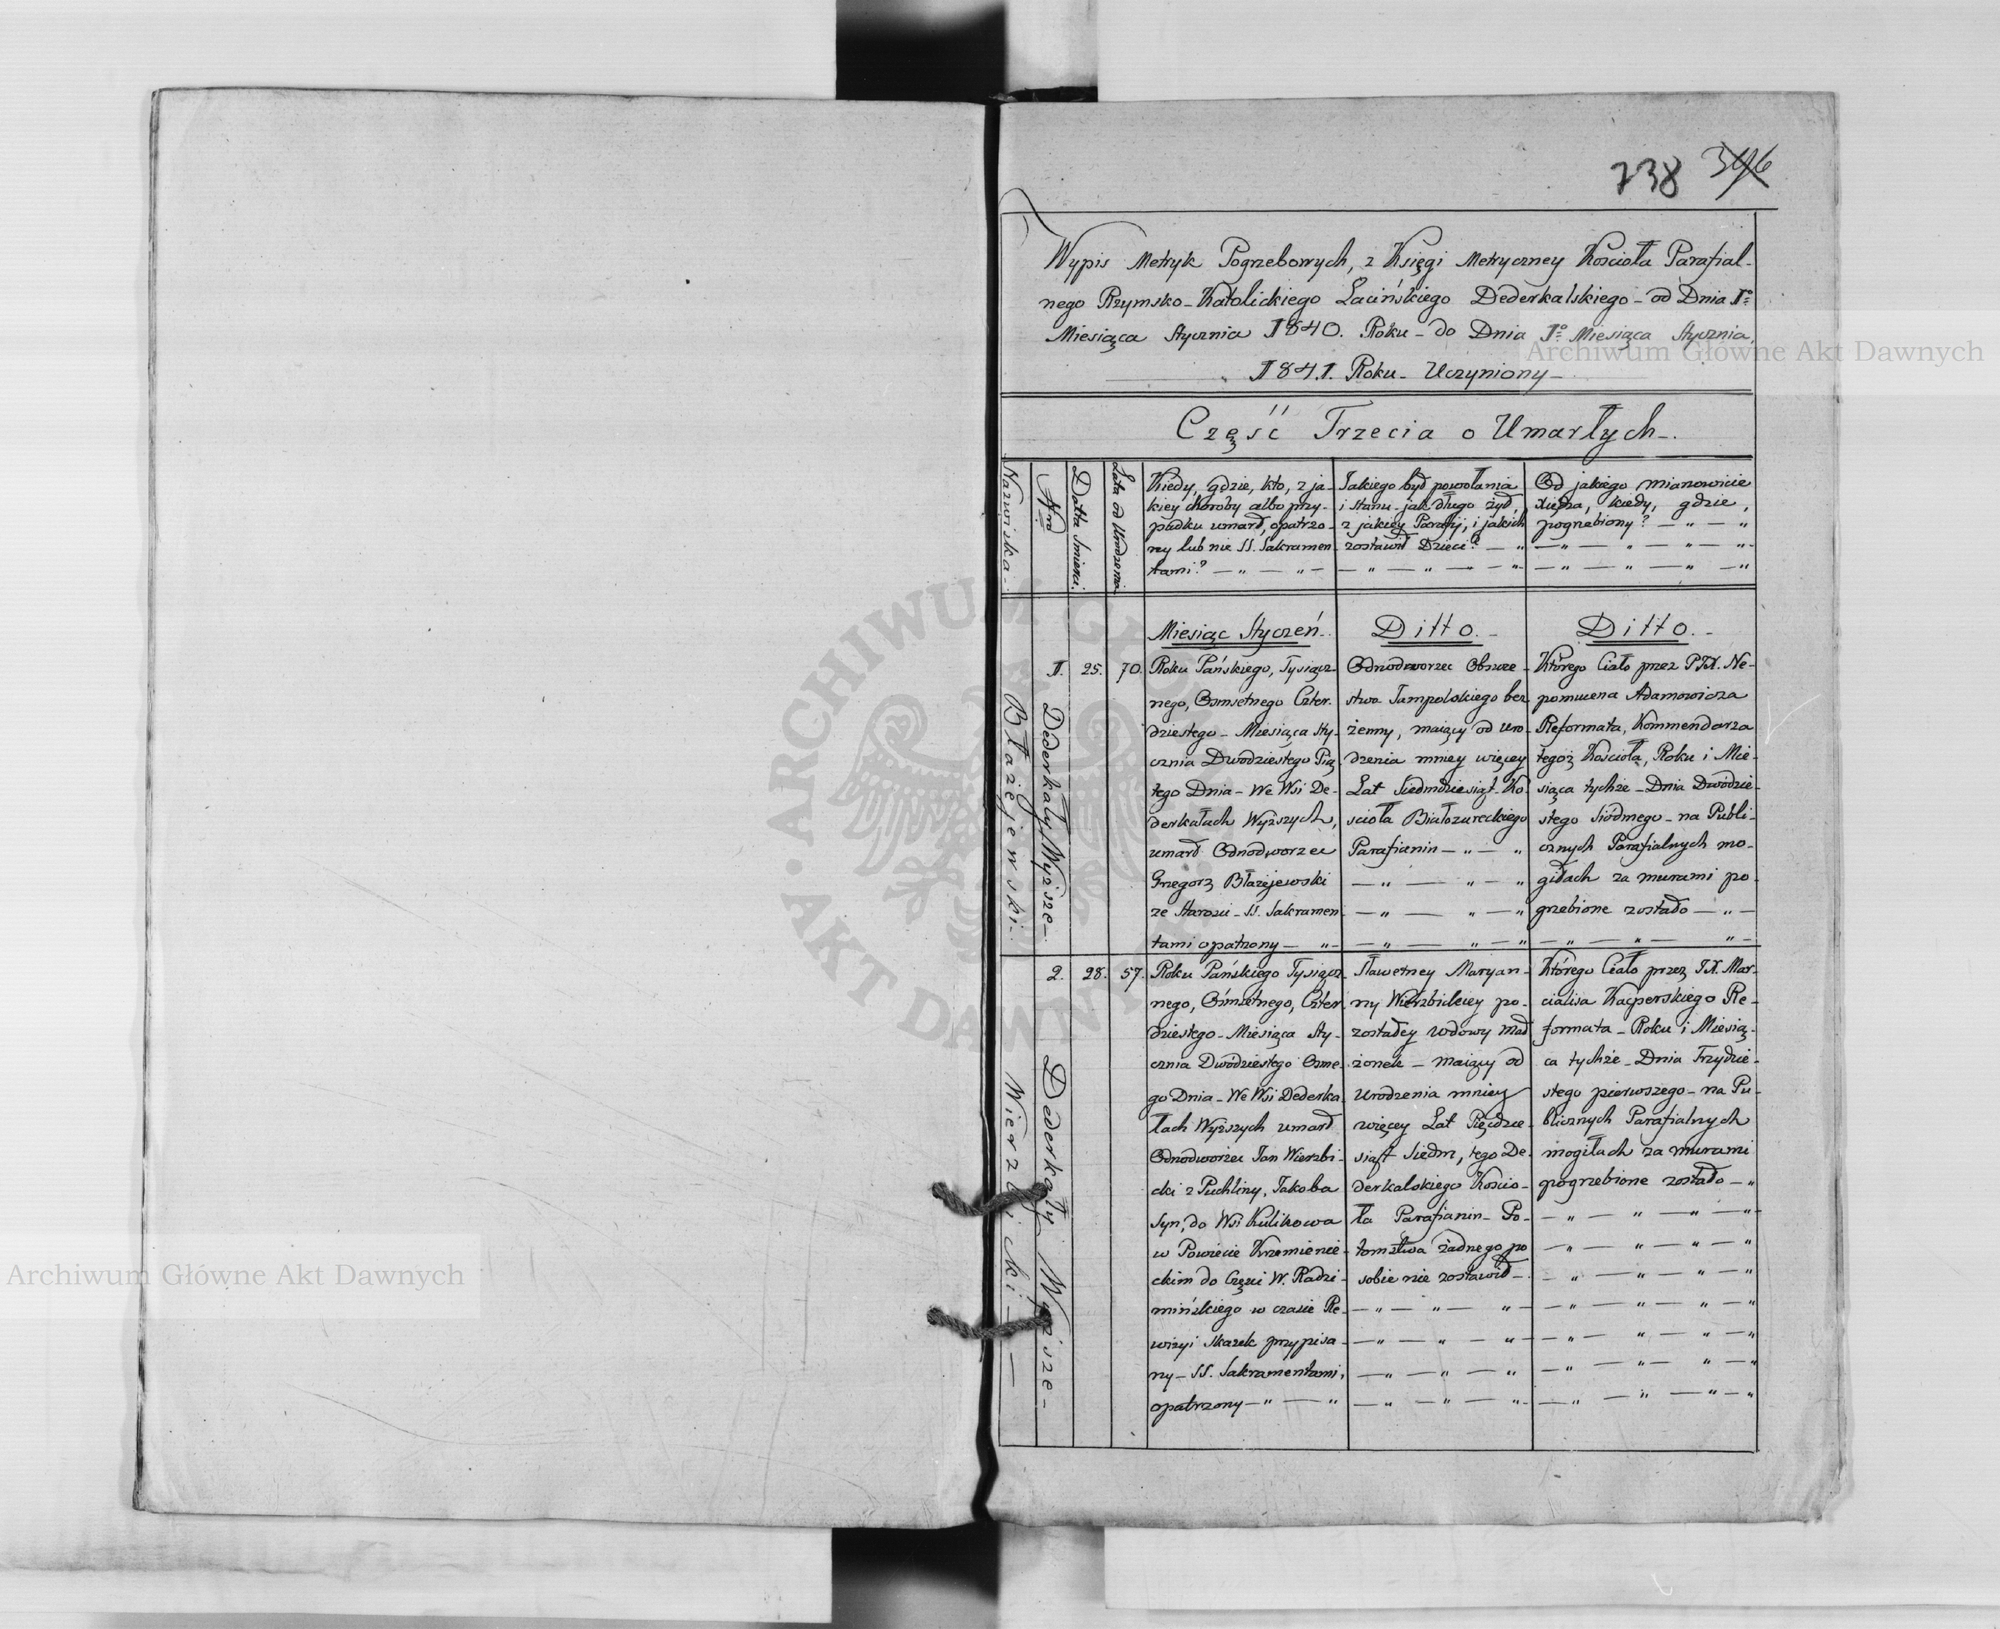 738 396
Wypis Metryk Pogrzebowych, z Księgi Metryczney Kościoła Parafial-
nego Rzymsko-Katolickiego Łacińskiego Dederkalskiego - od Dnia 1º
Miesiąca Stycznia 1840. Roku - do Dnia 1º Miesiąca Stycznia,
1841. Roku - Uczyniony -
Część Trzecia o Umarłych -.
Nazwiska -
Nro
Datta Śmierci.
Lata od Urodzenia.
Kiedy, gdzie, kto, z ja-
kiey choroby albo przy-
padku umarł, opatrzo-
ny lub nie SS. Sakramen-
tami? — " — " —
Jakiego był powołania
i stanu - jak długo żył,
z jakiey Parafij, i jakich
zostawił Dzieci? — "
— " — " — " — "
Od jakiego mianowicie
Xiędza, kiedy, gdzie,
pogrzebiony? — " — "
— " — " — " — "
— " — " — " — "
Błażejewski -
1.
Dederkały Wyższe -
25.
70.
Miesiąc Styczeń -
Roku Pańskiego, Tysiącz-
nego, Osmsetnego Czter-
dziestego - Miesiąca Sty-
cznia Dwódziestego Pią-
tego Dnia - We Wsi De-
derkałach Wyższych,
umarł Odnodworzec
Grzegorz Błażejewski
ze Starości - SS. Sakramen-
tami opatrzony — " —
Ditto. -
Odnodworzec Obszze-
stwa Jampolskiego bez-
żenny, maiący od Uro-
dzenia mniey więcey
Lat Siedmdziesiąt - Ko-
scioła Białozureckiego
Parafianin — " — "
— " — " — "
— " — " — "
— " — " — "
Ditto. -
Którego Ciało przez PJX. Ne-
pomucena Adamowicza
Reformata, Kommendarza
tegoż Kościoła, Roku i Mie-
siąca tychże - Dnia Dwódzie-
stego Siódmego - na Publi-
cznych Parafialnych mo-
giłach za murami po-
grzebione zostało — " —
— " — " — " —
Wierzbicki —
2.
Dederkały Wyższe -
28.
57.
Roku Pańskiego Tysiącz-
nego, Ośmsetnego, Czter-
dziestego - Miesiąca Sty-
cznia Dwódziestego Osme-
go Dnia - We Wsi Dederka-
łach Wyższych umarł
Odnodworzec Jan Wierzbi-
cki z Puchliny, Jakoba
Syn, do Wsi Kulikowa
w Powiecie Krzemienie-
ckim do Części W. Radzi-
mińskiego w czasie Re-
wizyi Skazek przypisa-
ny - SS. Sakramentami,
opatrzony — " — "
Sławetney Maryan-
ny Wierzbickiey po-
zostałey wdowy mał-
żonek - maiący od
Urodzenia mniey
więcey Lat Pięćdzie-
siąt Siedm, tego De-
derkalskiego Kościo-
ła Parafianin - Po-
tomstwa żadnego po
sobie nie zostawił -
— " — " — " —
— " — " — " —
— " — " — "
— " — " — " -
Którego Ciało przez JX. Mar-
cialisa Kacperskiego Re-
formata - Roku i Miesią-
ca tychże - Dnia Trzydzie-
stego pierwszego - na Pu-
blicznych Parafialnych
mogiłach za murami
pogrzebione zostało — "
— " — " — " — "
— " — " — " — "
— " — " — " — "
— " — " — " — "
— " — " — " — "
— " — " — " — "
— " — " — " — "
Archiwum Główne Akt Dawnych
Archiwum Główne Akt Dawnych
ARCHIWUM GŁÓWNE AKT DAWNYCH